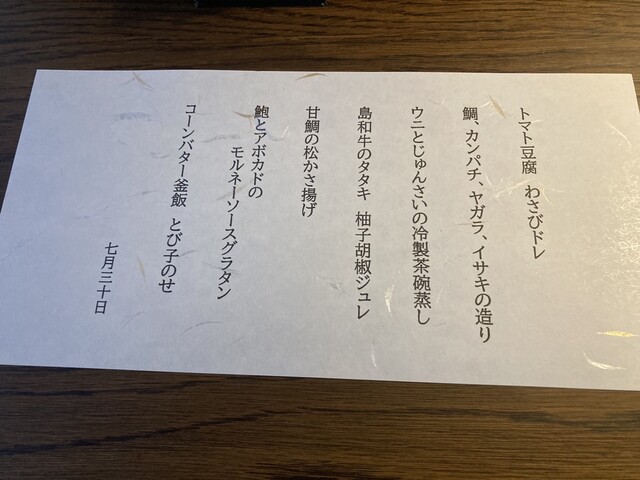 トマト豆腐　わさびドレ
鯛、カンパチ、ヤガラ、イサキの造り
ウニとじゅんさいの冷製茶碗蒸し
島和牛のタタキ　柚子胡椒ジュレ
甘鯛の松かさ揚げ
鮑とアボカドの
モルネーソースグラタン
コーンバター釜飯　とび子のせ
七月三十日